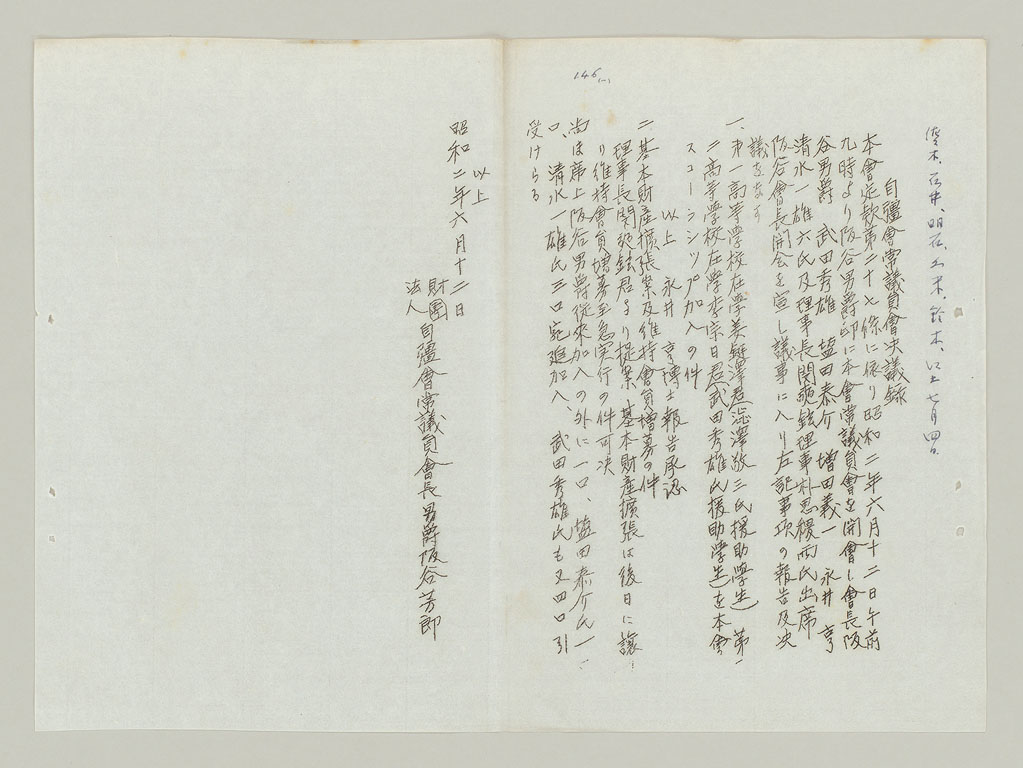 146
自彊會常議員會決議録
本會定款第二十七條に係り昭和二年六月十二日午前
九時より阪谷男爵邸に本會常議員會を開會し會長阪
谷男爵 武田秀雄 塩田泰介 増田義一 永井 亨
清水一雄六氏及理事長関 理事朴思稷両氏出席
阪谷會長開会を宣し議事に入り左記事項の報告及決
議をなす
一、第一高等学校在学 澤君澁澤敬三氏援助学生 第一
二高等学校在学李宗日君武田秀雄氏援助学生を本會
スコーラシップ加入の件
以上 永井 亨博士報告承認
二 基本財産擴張案及維持會員増募の件
理事長関 君より提案、基本財産擴張は後日に譲
り維持會員増募至急実行の件可決
尚ほ席上阪谷男爵従来加入の外に一口、塩田泰介氏一
口、清水一雄氏三口宛追加入、武田秀雄氏も又四口引
受けらる
以上
昭和二年六月十二日
財團法人自彊會常議員會長男爵阪谷芳郎